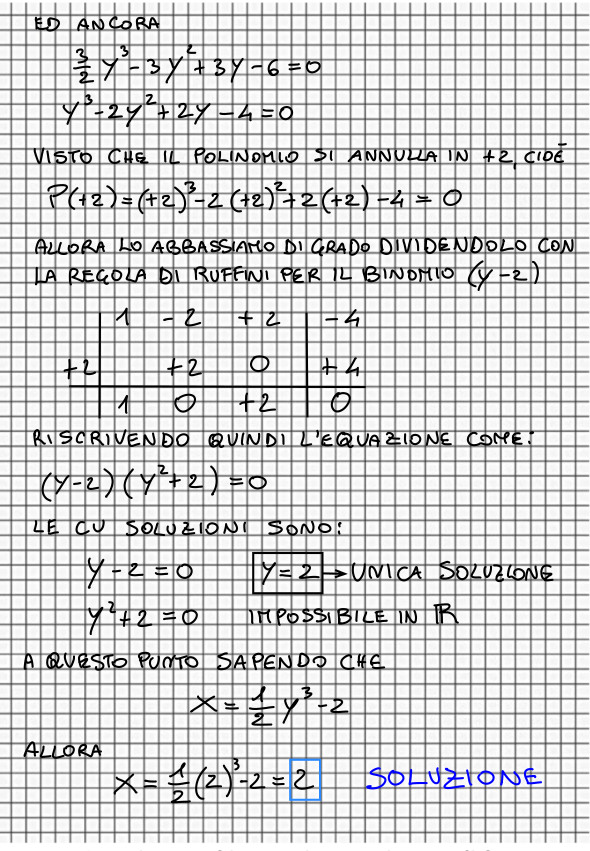 ED ANCORA
3/2 y³ - 3y² + 3y - 6 = 0
y³ - 2y² + 2y - 4 = 0
VISTO CHE IL POLINOMIO SI ANNULLA IN +2, CIOÈ
P(+2) = (+2)³ - 2(+2)² + 2(+2) - 4 = 0
ALLORA LO ABBASSIAMO DI GRADO DIVIDENDOLO CON
LA REGOLA DI RUFFINI PER IL BINOMIO (y - 2)
1 -2 +2 -4
+2 +2 0 +4
1 0 +2 0
RISCRIVENDO QUINDI L'EQUAZIONE COME:
(y - 2)(y² + 2) = 0
LE CU SOLUZIONI SONO:
y - 2 = 0 y = 2 → UNICA SOLUZIONE
y² + 2 = 0 IMPOSSIBILE IN ℝ
A QUESTO PUNTO SAPENDO CHE
x = 1/2 y³ - 2
ALLORA
x = 1/2 (2)³ - 2 = 2 SOLUZIONE